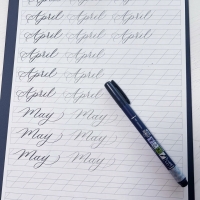 April April April
April April April
April April
April April
April April
May May
May May
May May